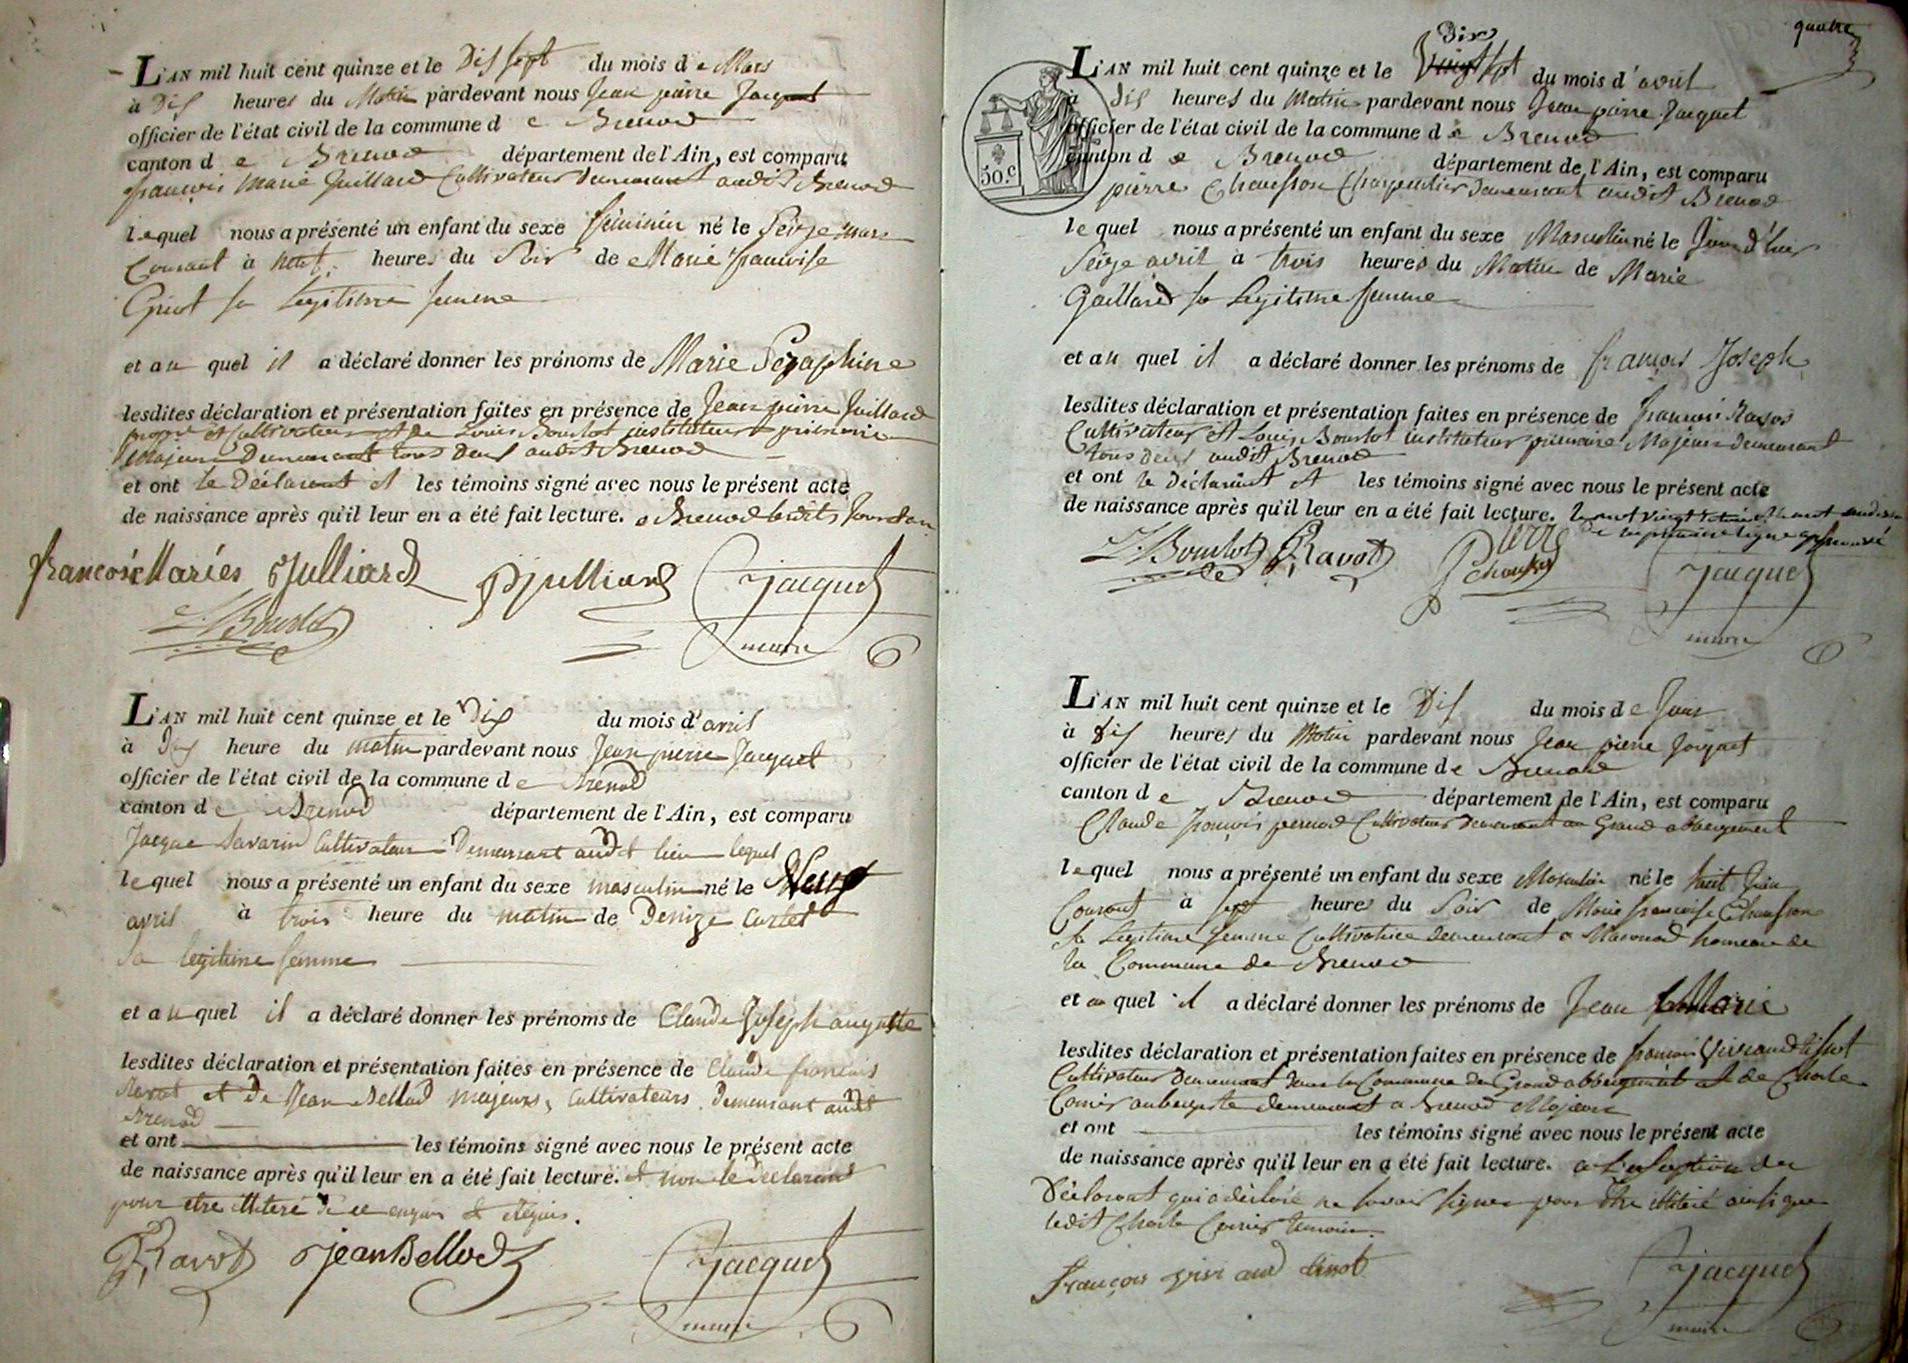 L'AN mil huit cent quinze et le Dis sept du mois de Mars
à Dis heures du Matin pardevant nous Jean pierre Jacquet
officier de l'état civil de la commune de Brenod
canton de Brenod département de l'Ain, est comparu
françois marie Juillard Cultivateur demeurant audit Brenod
lequel nous a présenté un enfant du sexe féminin né le Seize mars
Courant à neuf heures du Soir de Marie françoise
sa Legitime femme
et au quel il a déclaré donner les prénoms de Marie Séraphine
lesdites déclaration et présentation faites en présence de Jean pierre Juillard
et Cultivateur et de Louis Bourlot instituteur primaire
Majeurs Demeurant tous deux audit Brenod
et ont le Déclarant et les témoins signé avec nous le présent acte
de naissance après qu'il leur en a été fait lecture. a Brenod lesdits Jour et an
francois Maries Julliard PJulliard Jacquet
L. Bourlot maire
L'AN mil huit cent quinze et le Dix du mois d'avril
à Dix heure du matin pardevant nous Jean pierre Jacquet
officier de l'état civil de la commune de Brenod
canton de Brenod département de l'Ain, est comparu
Jacque Savarin Cultivateur Demeurant audit lieu lequel
lequel nous a présenté un enfant du sexe masculin né le Neuf
avril à trois heure du matin de Denize Carlet
Sa legitime femme
et au quel il a déclaré donner les prénoms de Claude Joseph auguste
lesdites déclaration et présentation faites en présence de Claude francois
Ravot et de Jean Bellod majeurs, Cultivateurs Demeurant audit
Brenod
et ont les témoins signé avec nous le présent acte
de naissance après qu'il leur en a été fait lecture. et non le Déclarant
pour etre illiteré de ce enquis et requis.
Ravot Jean Bellod Jacquet
maire
quatre
Dix
L'AN mil huit cent quinze et le Vingt sept du mois d'avril
à dix heures du Matin pardevant nous Jean pierre Jacquet
officier de l'état civil de la commune de Brenod
canton de Brenod département de l'Ain, est comparu
50.c
pierre Chausson Charpentier Demeurant audit Brenod
lequel nous a présenté un enfant du sexe Masculin né le Jour d'hier
Seize avril à trois heures du Matin de Marie
Gaillard sa Legitime femme
et au quel il a déclaré donner les prénoms de françois Joseph
lesdites déclaration et présentation faites en présence de francois Ravot
Cultivateur et Louis Bourlot instituteur primaire Majeurs demeurant
tous deux audit Brenod
et ont le Déclarant et les témoins signé avec nous le présent acte
de naissance après qu'il leur en a été fait lecture. Le mot vingt
de la premiere ligne approuvé
L. Bourlot Ravot Pierre chausson Jacquet
maire
L'AN mil huit cent quinze et le Dix du mois de Juin
à dix heures du Matin pardevant nous Jean pierre Jacquet
officier de l'état civil de la commune de Brenod
canton de Brenod département de l'Ain, est comparu
Claude françois pernod Cultivateur Demeurant au Grand abbergement
lequel nous a présenté un enfant du sexe Masculin né le huit Juin
Courant à sept heures du Soir de Marie françoise Chausson
sa Legitime femme Cultivatrice demeurant a hameau de
la Commune de Brenod
et au quel il a déclaré donner les prénoms de Jean Marie
lesdites déclaration et présentation faites en présence de francois Vivrand tissot
Cultivateur Demeurant dans la Commune du Grand abbergement et de Charle
aubergiste demeurant a Brenod Majeurs
et ont les témoins signé avec nous le présent acte
de naissance après qu'il leur en a été fait lecture. a L'exception du
Déclarant qui a déclaré ne savoir signer pour être illitéré ainsi que
ledit Charle témoin.
françois tissot Jacquet
maire